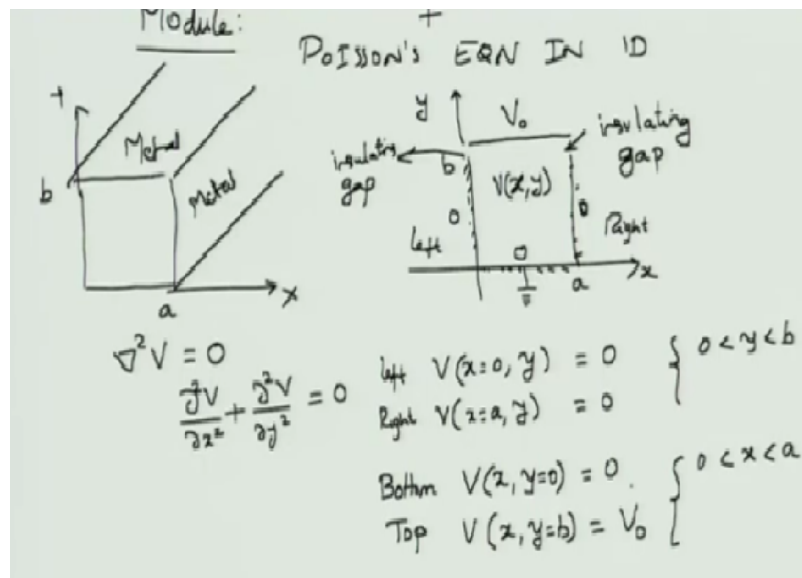 Module:
POISSON'S EQN IN 1D
b
Metal
Metal
a
x
y
V₀
insulating
gap
insulating
gap
b
V(x,y)
0
0
left
Right
0
a
x
∇²V = 0
∂²V/∂x² + ∂²V/∂y² = 0
left V(x=0, y) = 0
Right V(x=a, y) = 0
0 < y < b
Bottom V(x, y=0) = 0.
Top V(x, y=b) = V₀
0 < x < a